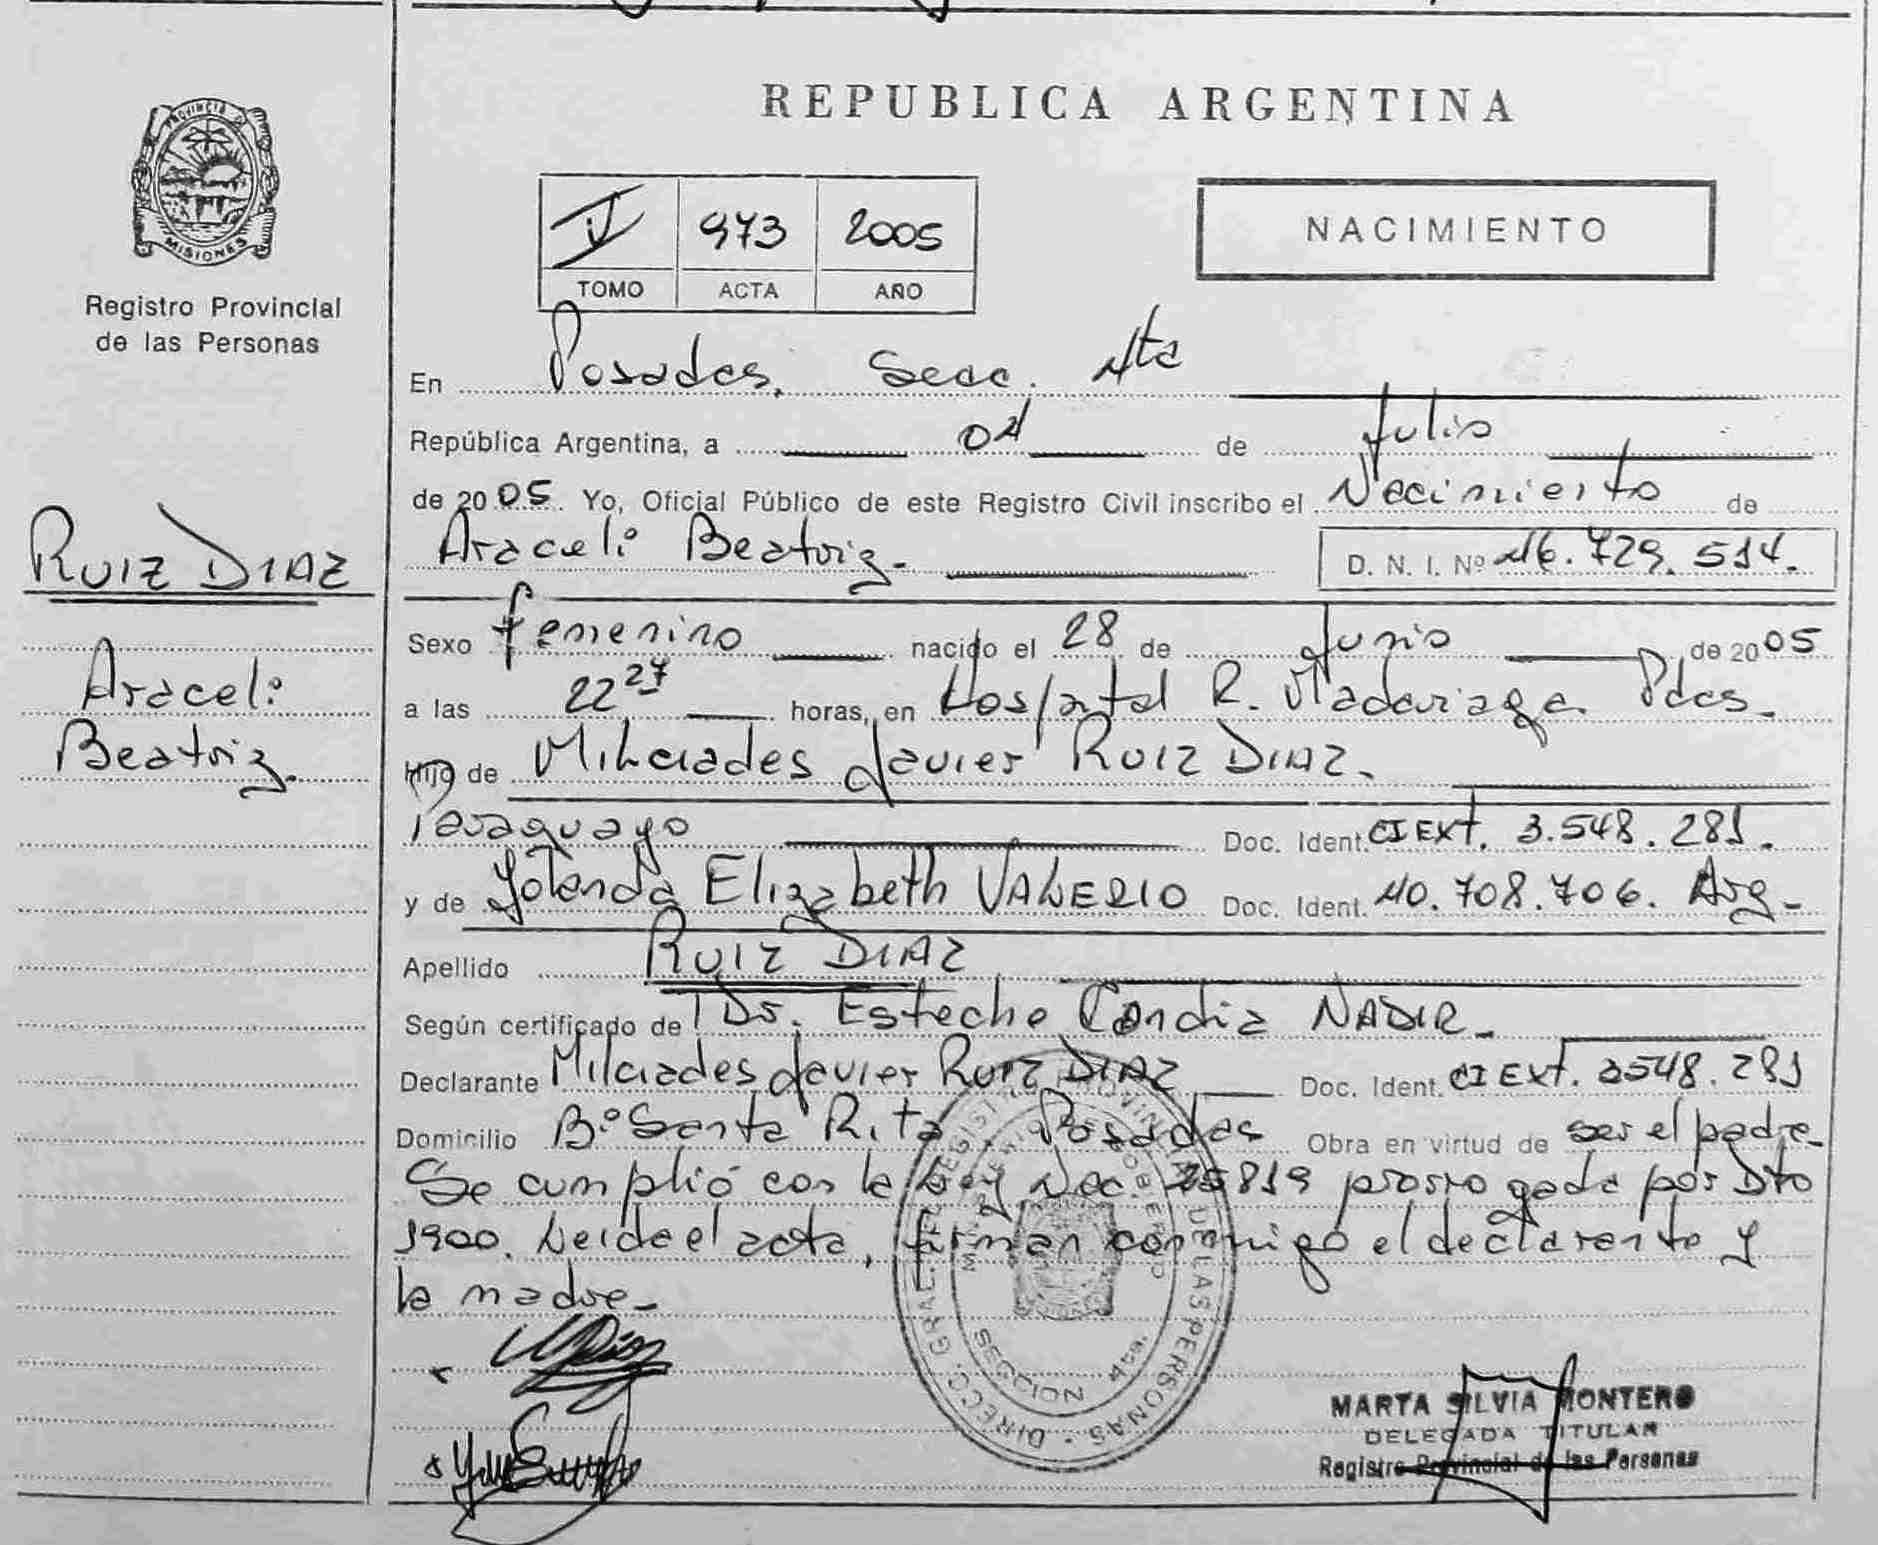 REPUBLICA ARGENTINA
PROVINCIA DE
MISIONES
Registro Provincial
de las Personas
973 2005
TOMO ACTA AÑO
NACIMIENTO
En Posadas, Secc. 4ta
República Argentina, a 04 de Julio
de 2005. Yo, Oficial Público de este Registro Civil inscribo el Nacimiento de
RUIZ DIAZ
Araceli Beatriz.- D. N. I. Nº 46.729.514.
Sexo femenino nacido el 28 de Junio de 2005
Araceli
Beatriz.
a las 22 27 horas, en Hospital R. Madariaga. Pdas.-
Hijo de Milciades Javier RUIZ DIAZ.-
Paraguayo Doc. Ident. CI EXt. 3.548.281.
y de Yolanda Elizabeth VALERIO Doc. Ident. 40.708.706. Arg.-
Apellido RUIZ DIAZ
Según certificado de Dr. Esteche Candia NADIR.-
Declarante Milciades Javier RUIZ DIAZ Doc. Ident. CI EXt. 3548.281
Domicilio Bº Santa Rita - Posadas Obra en virtud de ser el padre.-
Se cumplió con la Ley Nac. 25819 prorrogada por Dto
1900. Leida el acta, firman conmigo el declarante y
la madre.-
DIRECC. GRAL. DEL REGISTRO PROVINCIAL DE LAS PERSONAS
SECCION 4ta.
MARTA SILVIA MONTERO
DELEGADA TITULAR
Registro Provincial de las Personas